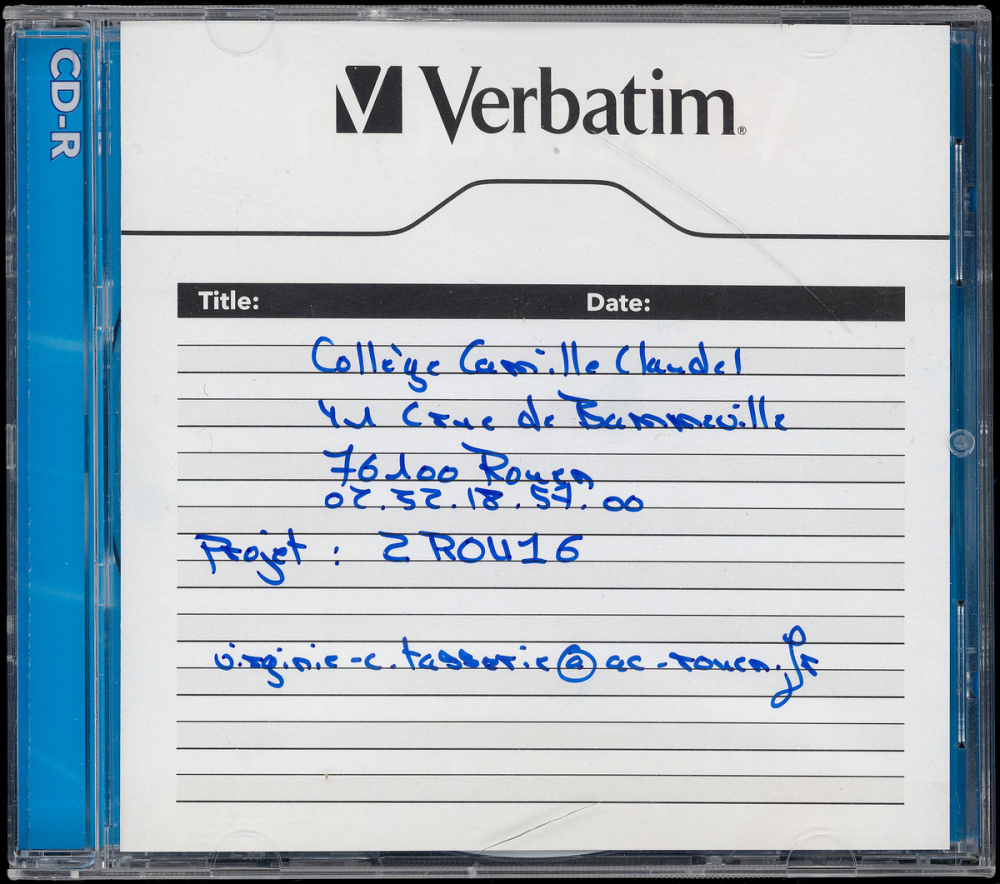 CD-R
Verbatim®
Title: Date:
Collège Camille Claudel
rue de Bammeville
76100 Rouen
02.32.18.57.00
Projet : 2ROU16
virginie-c.tasserie@ac-rouen.fr